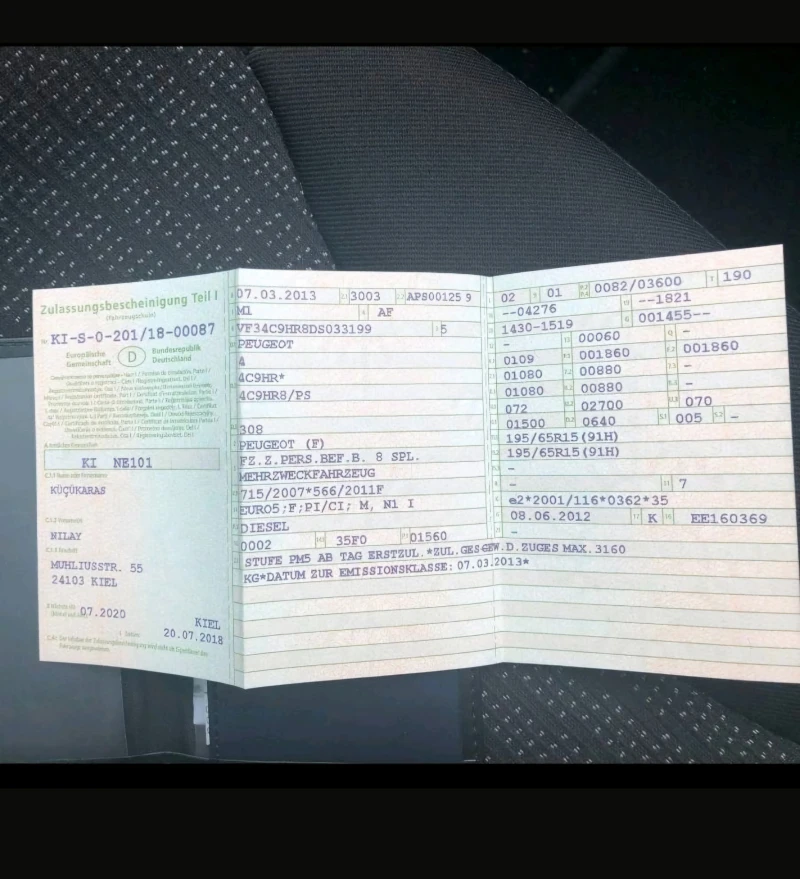 Zulassungsbescheinigung Teil I
(Fahrzeugschein)
Nr. KI-S-0-201/18-00087
Europäische Gemeinschaft
D
Bundesrepublik Deutschland
KI NE101
KÜÇÜKARAS
NILAY
MUHLIUSSTR. 55
24103 KIEL
07.2020
KIEL
20.07.2018
07.03.2013 3003 APS00125 9
M1 AF
VF34C9HR8DS033199 5
PEUGEOT
4
4C9HR*
4C9HR8/PS
308
PEUGEOT (F)
FZ.Z.PERS.BEF.B. 8 SPL.
MEHRZWECKFAHRZEUG
715/2007*566/2011F
EURO5;F;PI/CI; M, N1 I
DIESEL
0002 35F0 01560
STUFE PM5 AB TAG ERSTZUL.*ZUL.GES-GEW.D.ZUGES MAX.3160
KG*DATUM ZUR EMISSIONSKLASSE: 07.03.2013*
02 01 0082/03600 190
--04276 --1821
1430-1519 001455--
- 00060 -
0109 001860 001860
01080 00880 -
01080 00880 -
072 02700 070
01500 0640 005 -
195/65R15(91H)
195/65R15(91H)
-
- 7
e2*2001/116*0362*35
08.06.2012 K EE160369
-